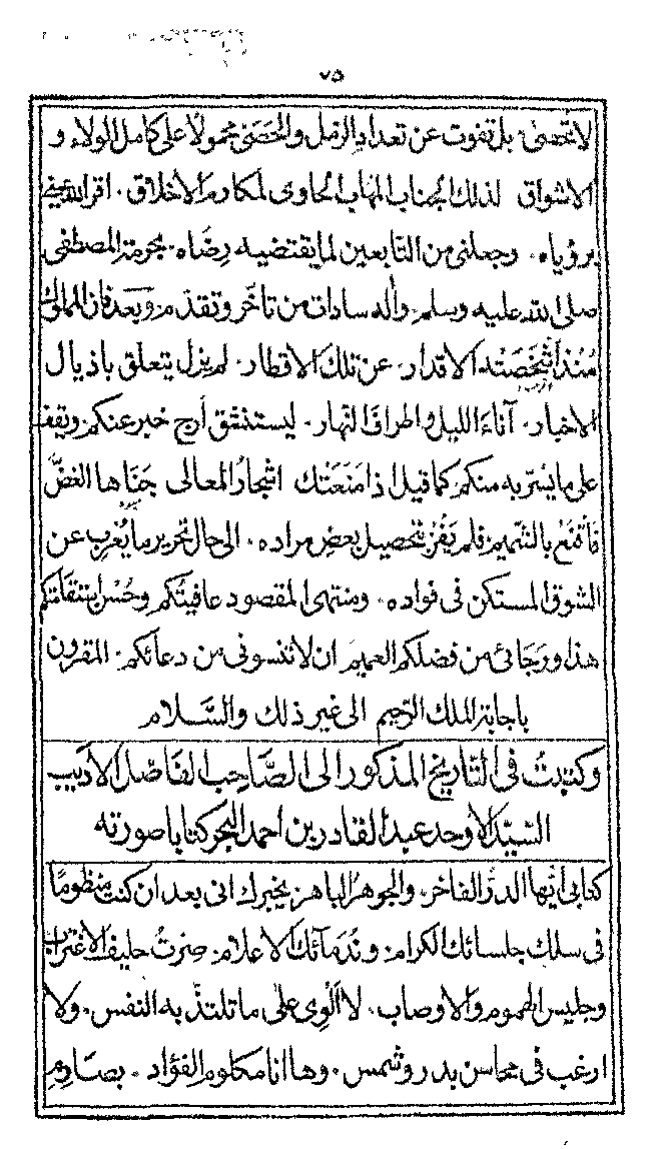 ٧٥
لا تحصى بل تفوت عن تعداد الرمل والحصى محمولا على كامل الولاء و
الاشواق لذلك الجناب المهاب الحاوى لمكارم الاخلاق. اقر الله عينى
برؤياه. وجعلنى من التابعين لما يقتضيه رضاه. بحرمة المصطفى
صلى الله عليه وسلم وآله سادات من تأخر وتقدم وبعد فان المملوك
مُنذ أشخصَته الاقدار. عن تلك الاقطار. لم يزل يتعلق باذيال
الاخبار. آناءَ الليل واطراف النهار. ليستنشق أرج خبر عنكم ويقف
على ما يسّر به منكم كما قيل اذا مَنَعَتك اشجارُ المعالى جَنَاها الغضَّ
فأقنَع بالشميم فلم يَفُز بتحصيل بعض مراده. الى حال تحرير ما يُغرب عن
الشوق المستكن فى فواده. ومنتهى المقصود عافيتُكم وحُسْن استقامتكم
هذا ورَجَائى من فضلكم العميم ان لا تنسونى من دعائكم. المقرون
باجابة الملك الرّحيم الى غير ذلك والسَّلام
وكتبتُ فى التاريخ المذكور الى الصَّاحِب الفَاضل الأديب
السّيّد الأوحد عبد القادر بن احمد البحر كتابا صورته
كتابى ايّها الدرّ الفاخر. والجوهر الباهر يخبرك انى بعد ان كنت منظومًا
فى سلك جلسائك الكرام. ونُدَمَائك الاعلام. صِرتُ حليف الاغتراب
وجليس الهموم والاوصاب. لا ألوِى على ما تلتذّ به النفس. ولا
ارغب فى محاسن بدر وشمس. وها انا مكلوم الفؤاد. بصَارِمِ